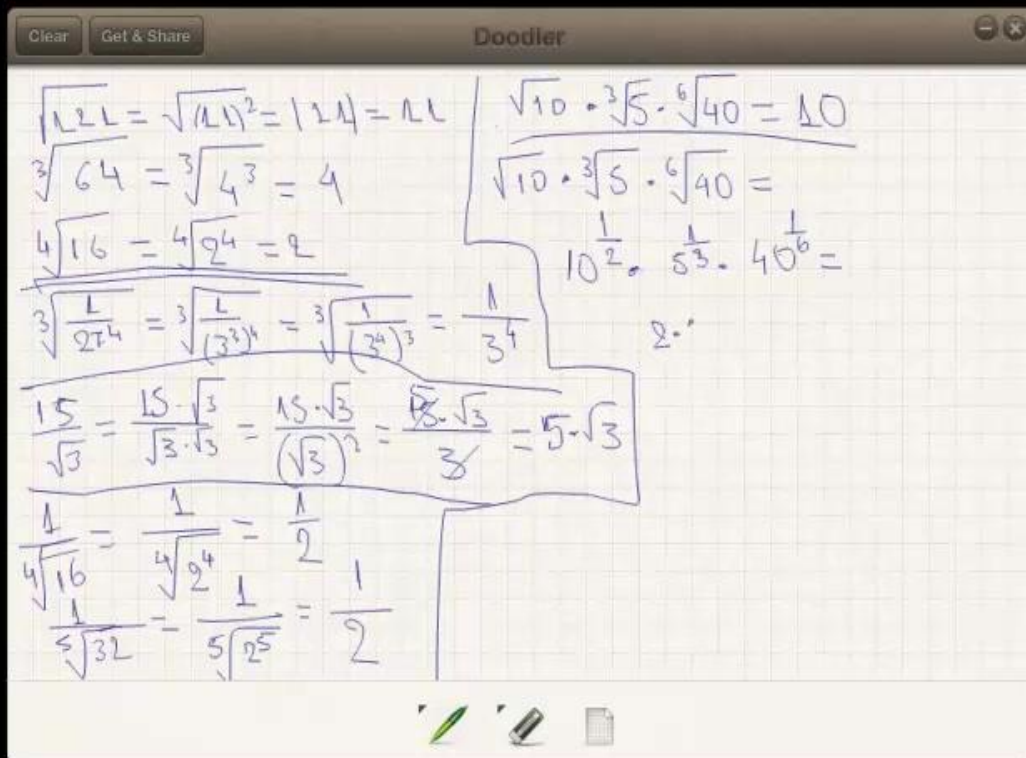 Clear Get & Share Doodler
√121 = √(11)² = |11| = 11
∛64 = ∛4³ = 4
∜16 = ∜2⁴ = 2
∛(1/27⁴) = ∛(1/(3³)⁴) = ∛(1/(3⁴)³) = 1/3⁴
15/√3 = 15·√3/√3·√3 = 15·√3/(√3)² = 15·√3/3 = 5·√3
1/∜16 = 1/∜2⁴ = 1/2
1/⁵√32 = 1/⁵√2⁵ = 1/2
√10 · ∛5 · ⁶√40 = 10
√10 · ∛5 · ⁶√40 =
10^(1/2) · 5^(1/3) · 40^(1/6) =
2·